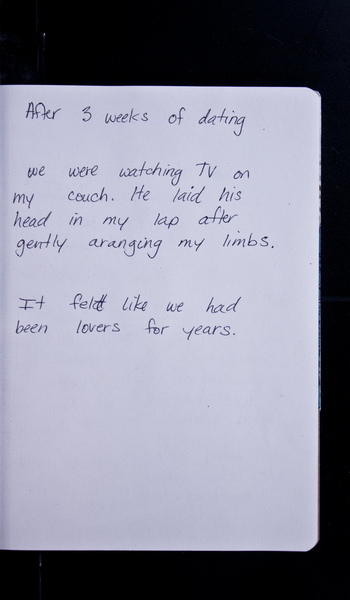 After 3 weeks of dating
we were watching TV on
my couch. He laid his
head in my lap after
gently aranging my limbs.
It felt like we had
been lovers for years.